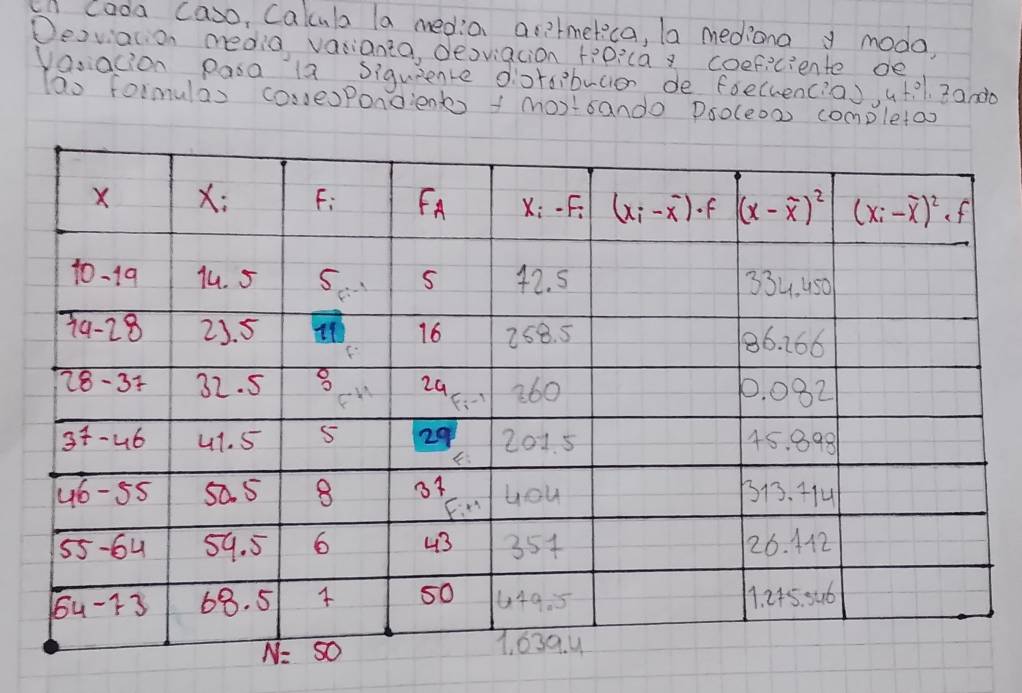 En cada caso, calcula la media aritmetica, la mediana y moda,
Desviacion media, varianza, desviacion tipica y coeficiente de
Variacion para la siguiente distribucion de frecuencias, utilizando
las formulas correspondientes y mostrando procesos completos
X Xi Fi FA Xi - Fi (xi - x̄) . f (x - x̄)² (xi - x̄)² . f
10-19 14.5 5 Fi-1 5 72.5 334.450
19-28 23.5 11 Fi 16 258.5 86.266
28-37 32.5 8 24 Fi-1 260 0.082
37-46 41.5 5 29 Fi 201.5 75.898
46-55 50.5 8 37 Fi+1 404 313.714
55-64 59.5 6 43 357 26.712
64-73 68.5 7 50 479.5 1.275.546
N= 50 1.639.4